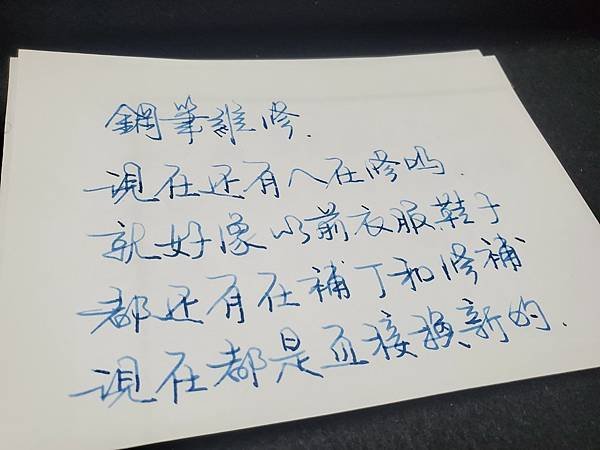 鋼筆維修.
現在还有人在修吗.
就好像以前衣服鞋子
都还有在補丁和修補
現在都是直接換新的.